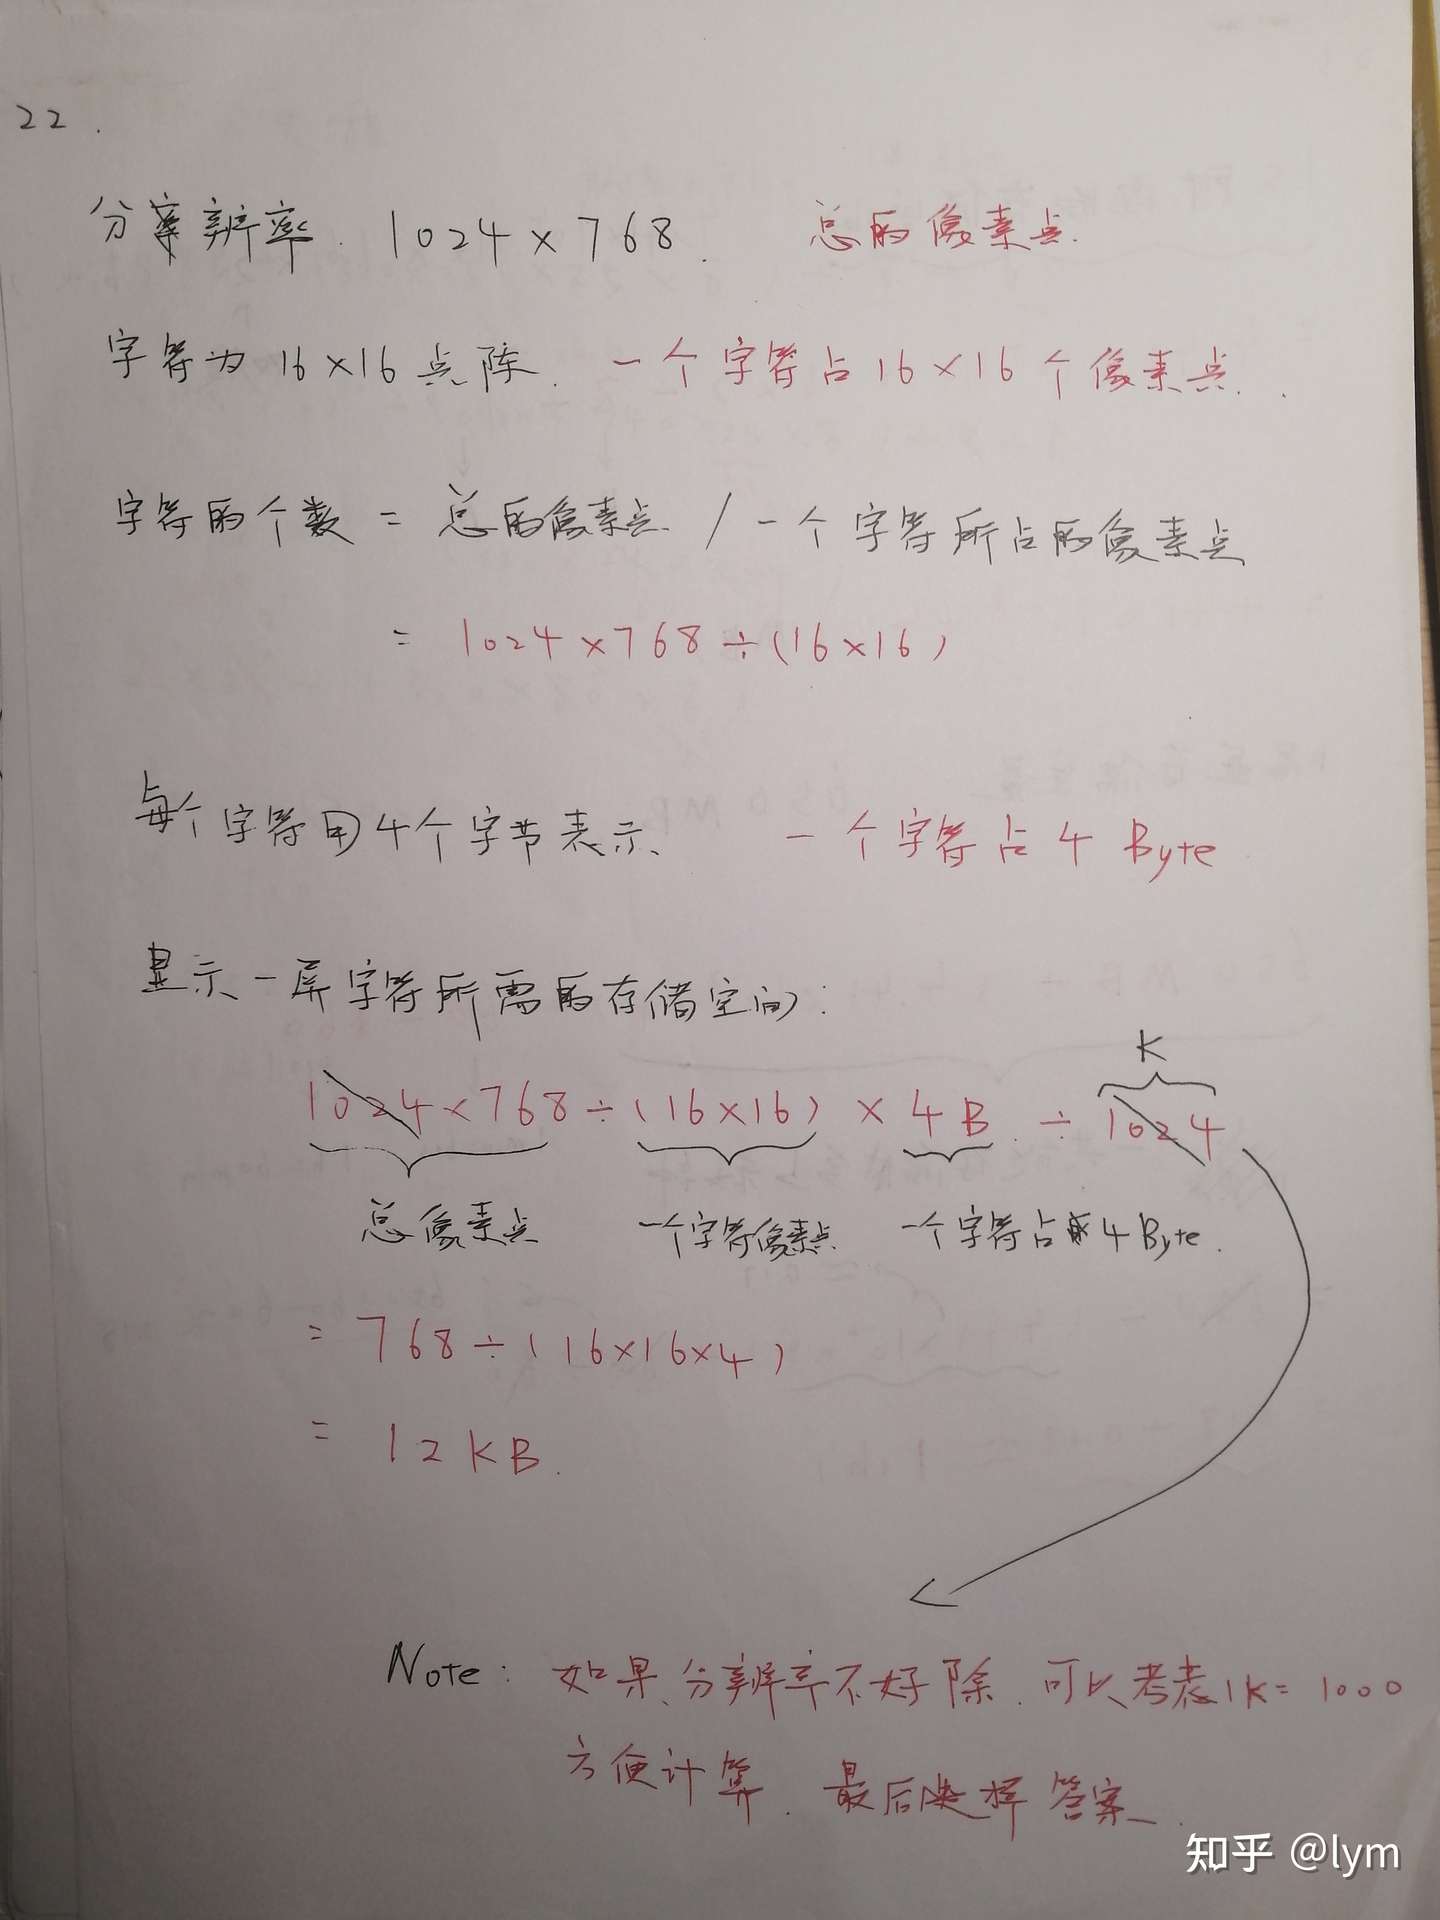 22.
分辨率. 1024×768. 总的像素点.
字符为16×16点阵. 一个字符占16×16个像素点.
字符的个数 = 总的像素点 / 一个字符所占的像素点
= 1024×768÷(16×16)
每个字符用4个字节表示、 一个字符占4 Byte
显示一屏字符所需的存储空间:
K
1024×768÷(16×16)×4B.÷1024
总像素点 一个字符像素点 一个字符占4Byte.
= 768÷(16×16×4)
= 12KB.
Note: 如果、分辨率不好除.可以考虑1K=1000
方便计算. 最后选择答案.
知乎 @lym